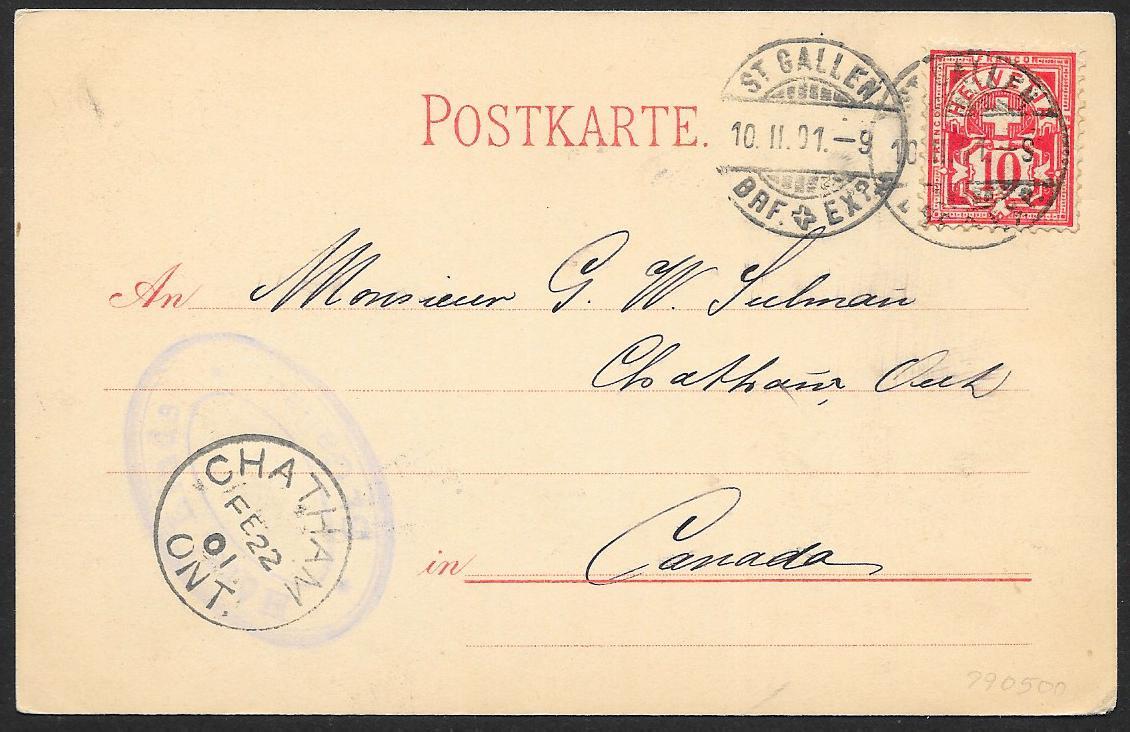 POSTKARTE.
ST GALLEN
10. II. 01. – 9
BRF. EXP.
FRANCO
HELVETIA
10
An Monsieur G. W. Sulman
Chatham, Ont.
in Canada
CHATHAM
FE 22
01
ONT.
790500